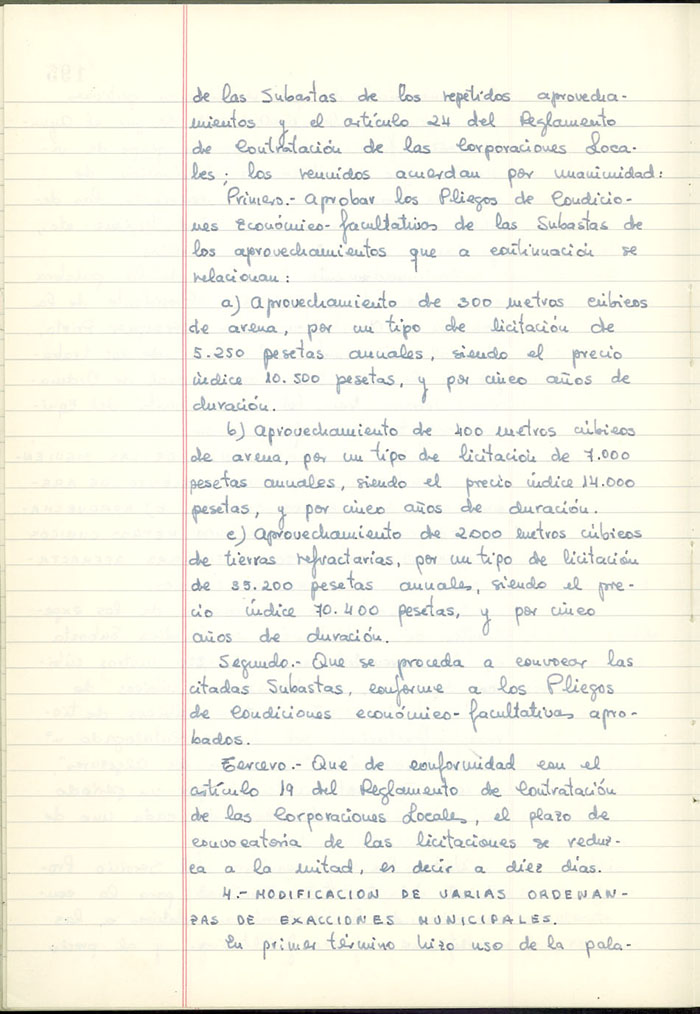 de las Subastas de los repetidos aprovecha-
mientos y el artículo 24 del Reglamento
de Contratación de las Corporaciones Loca-
les; los reunidos acuerdan por unanimidad:
Primero.- Aprobar los Pliegos de Condicio-
nes Económico-facultativos de las Subastas de
los aprovechamientos que a continuación se
relacionan:
a) Aprovechamiento de 300 metros cúbicos
de arena, por un tipo de licitación de
5.250 pesetas anuales, siendo el precio
índice 10.500 pesetas, y por cinco años de
duración.
b) Aprovechamiento de 400 metros cúbicos
de arena, por un tipo de licitación de 7.000
pesetas anuales, siendo el precio índice 14.000
pesetas, y por cinco años de duración.
c) Aprovechamiento de 2000 metros cúbicos
de tierras refractarias, por un tipo de licitación
de 35.200 pesetas anuales, siendo el pre-
cio índice 70.400 pesetas, y por cinco
años de duración.
Segundo.- Que se proceda a convocar las
citadas Subastas, conforme a los Pliegos
de Condiciones económico-facultativas apro-
bados.
Tercero.- Que de conformidad con el
artículo 19 del Reglamento de Contratación
de las Corporaciones Locales, el plazo de
convocatoria de las licitaciones se reduz-
ca a la mitad, es decir a diez días.
4.- MODIFICACION DE VARIAS ORDENAN-
ZAS DE EXACCIONES MUNICIPALES.
En primer término hizo uso de la pala-